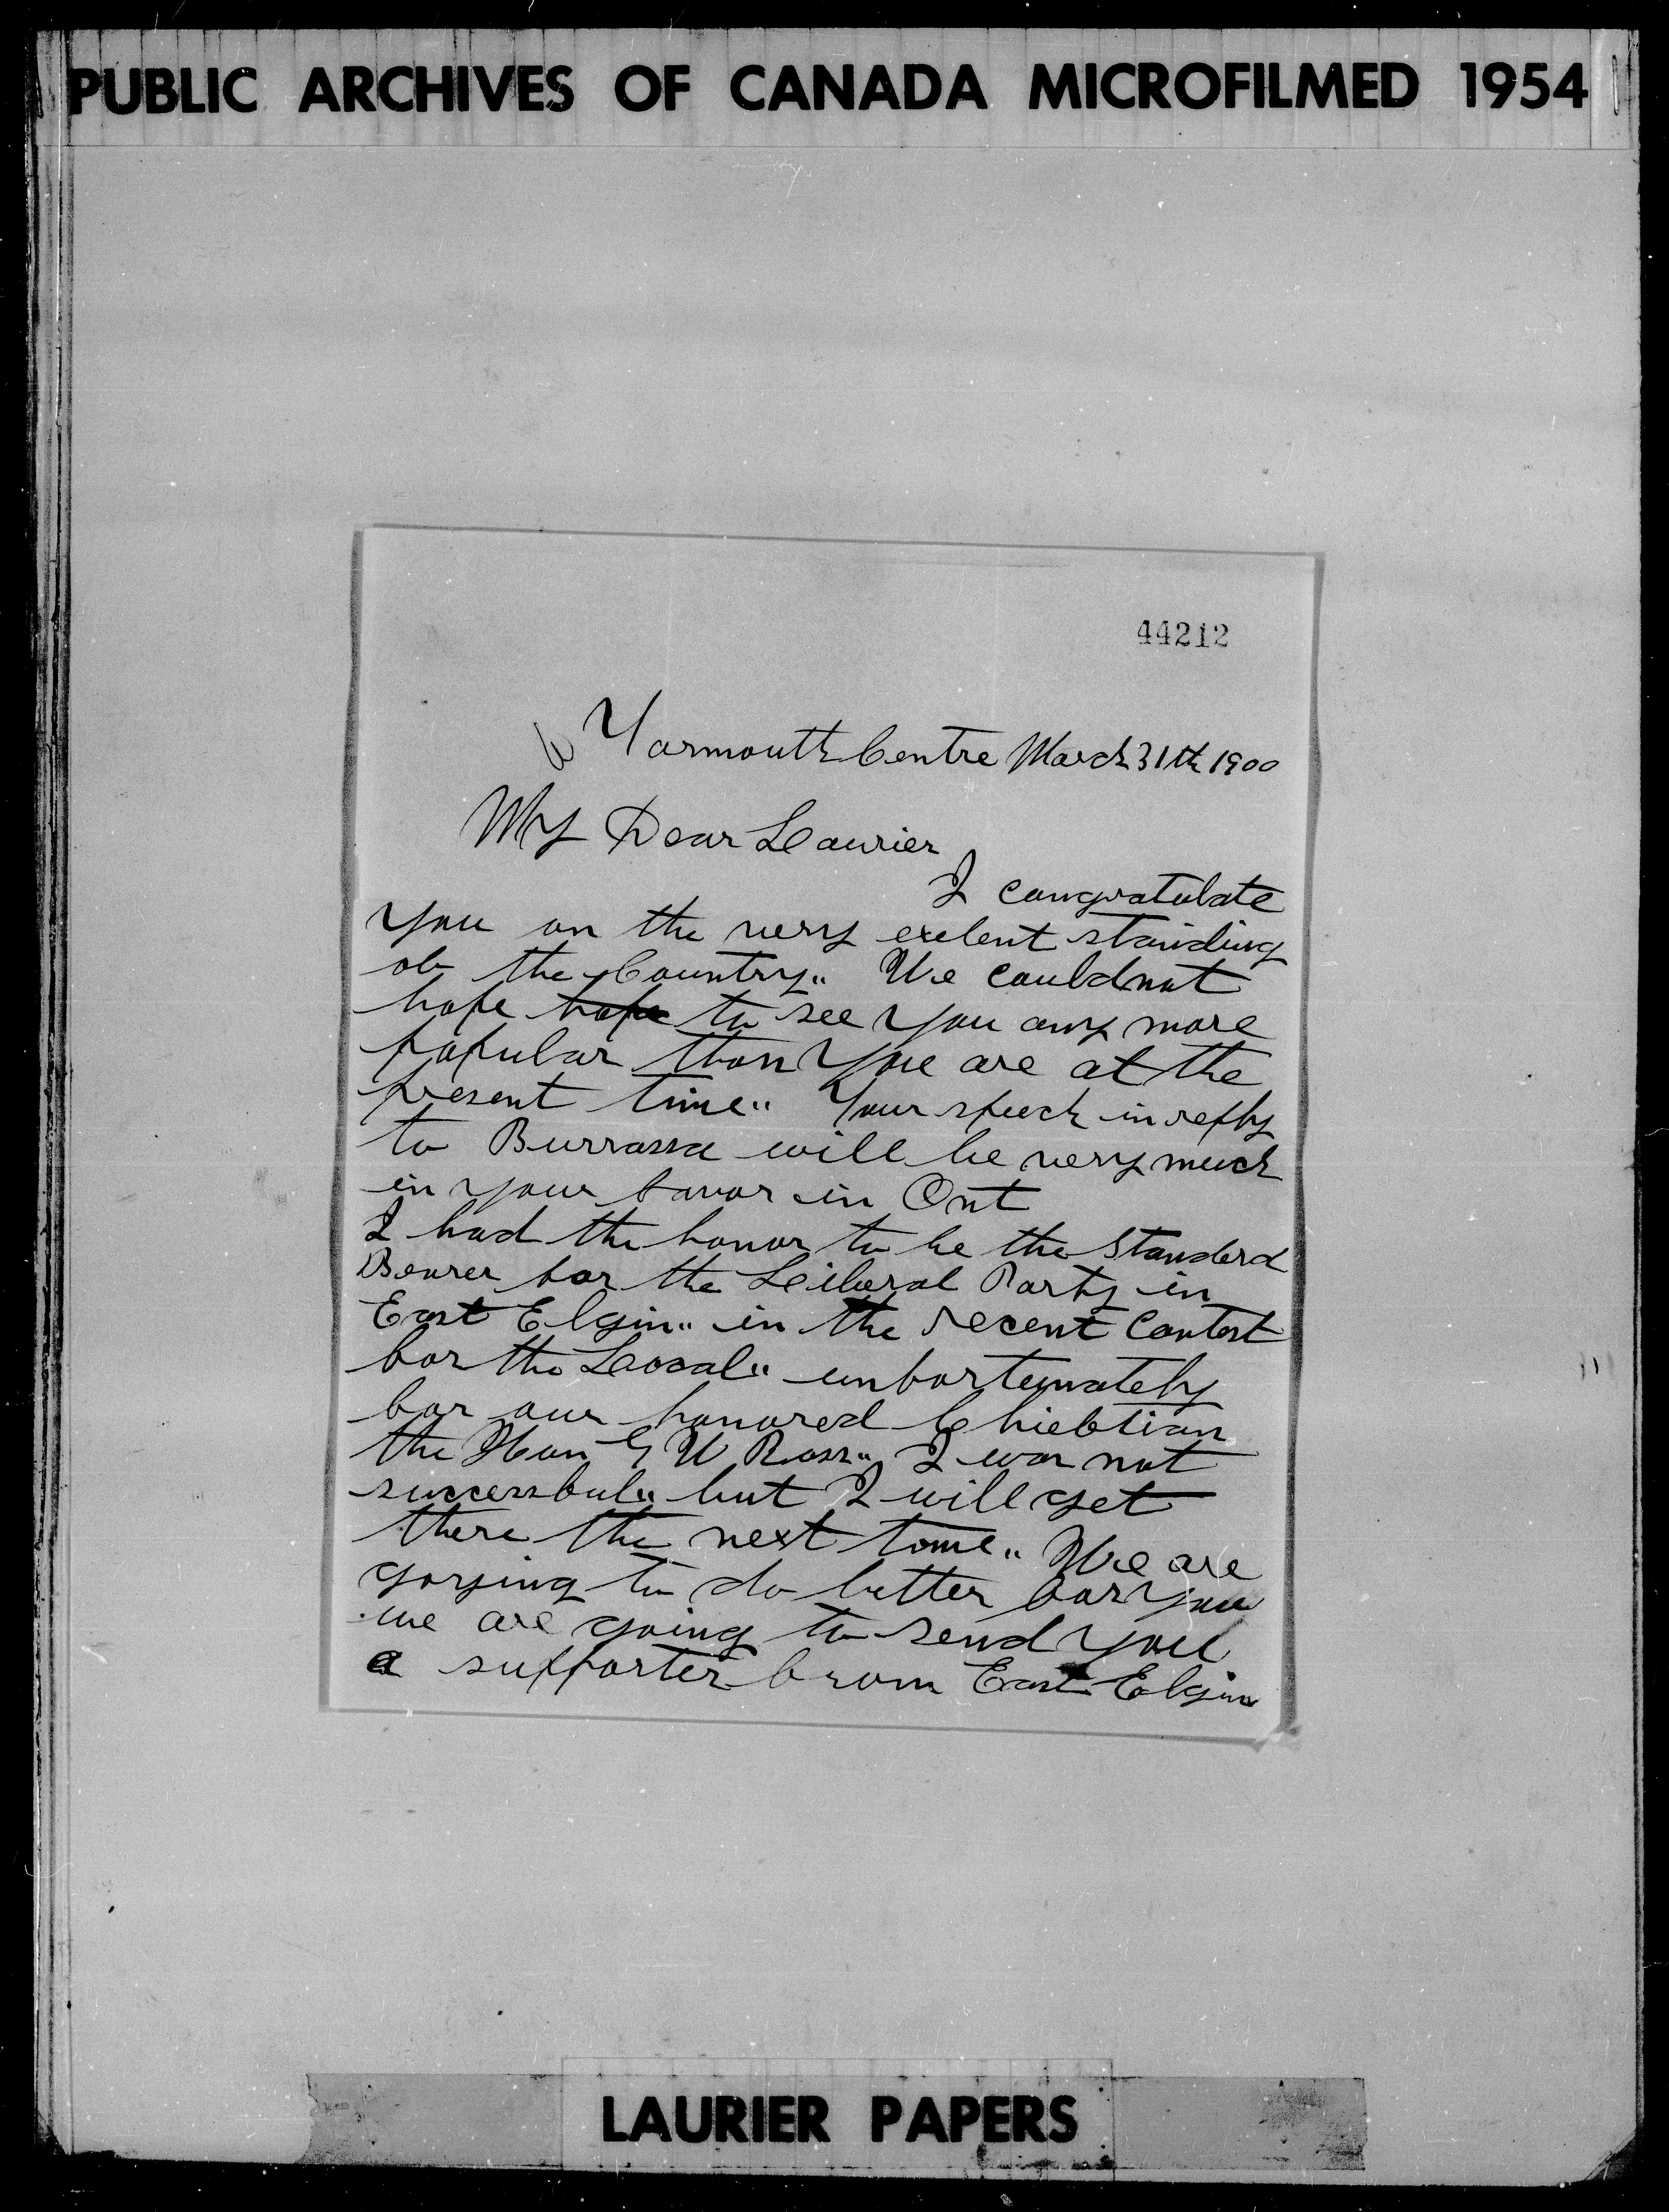 PUBLIC ARCHIVES OF CANADA MICROFILMED 1954
44212
Yarmouth Centre March 31th 1900
My Dear Laurier
I congratulate
you on the very exelent standing
of the Country" We could not
hope hope to see you any more
popular than you are at the
present time" Your speech in reply
to Burrassa will be very much
in your favor in Ont
I had the honor to be the Standerd
Bearer for the Leiberal Party in
East Elgin" in the recent Contest
for the Leocal" unfortunately
for our honored Chieftian
the Hon G W Ross" I was not
successful" but I will get
there the next time" We are
goying to do better for you
we are going to send you
a supporter from East Elgin
LAURIER PAPERS